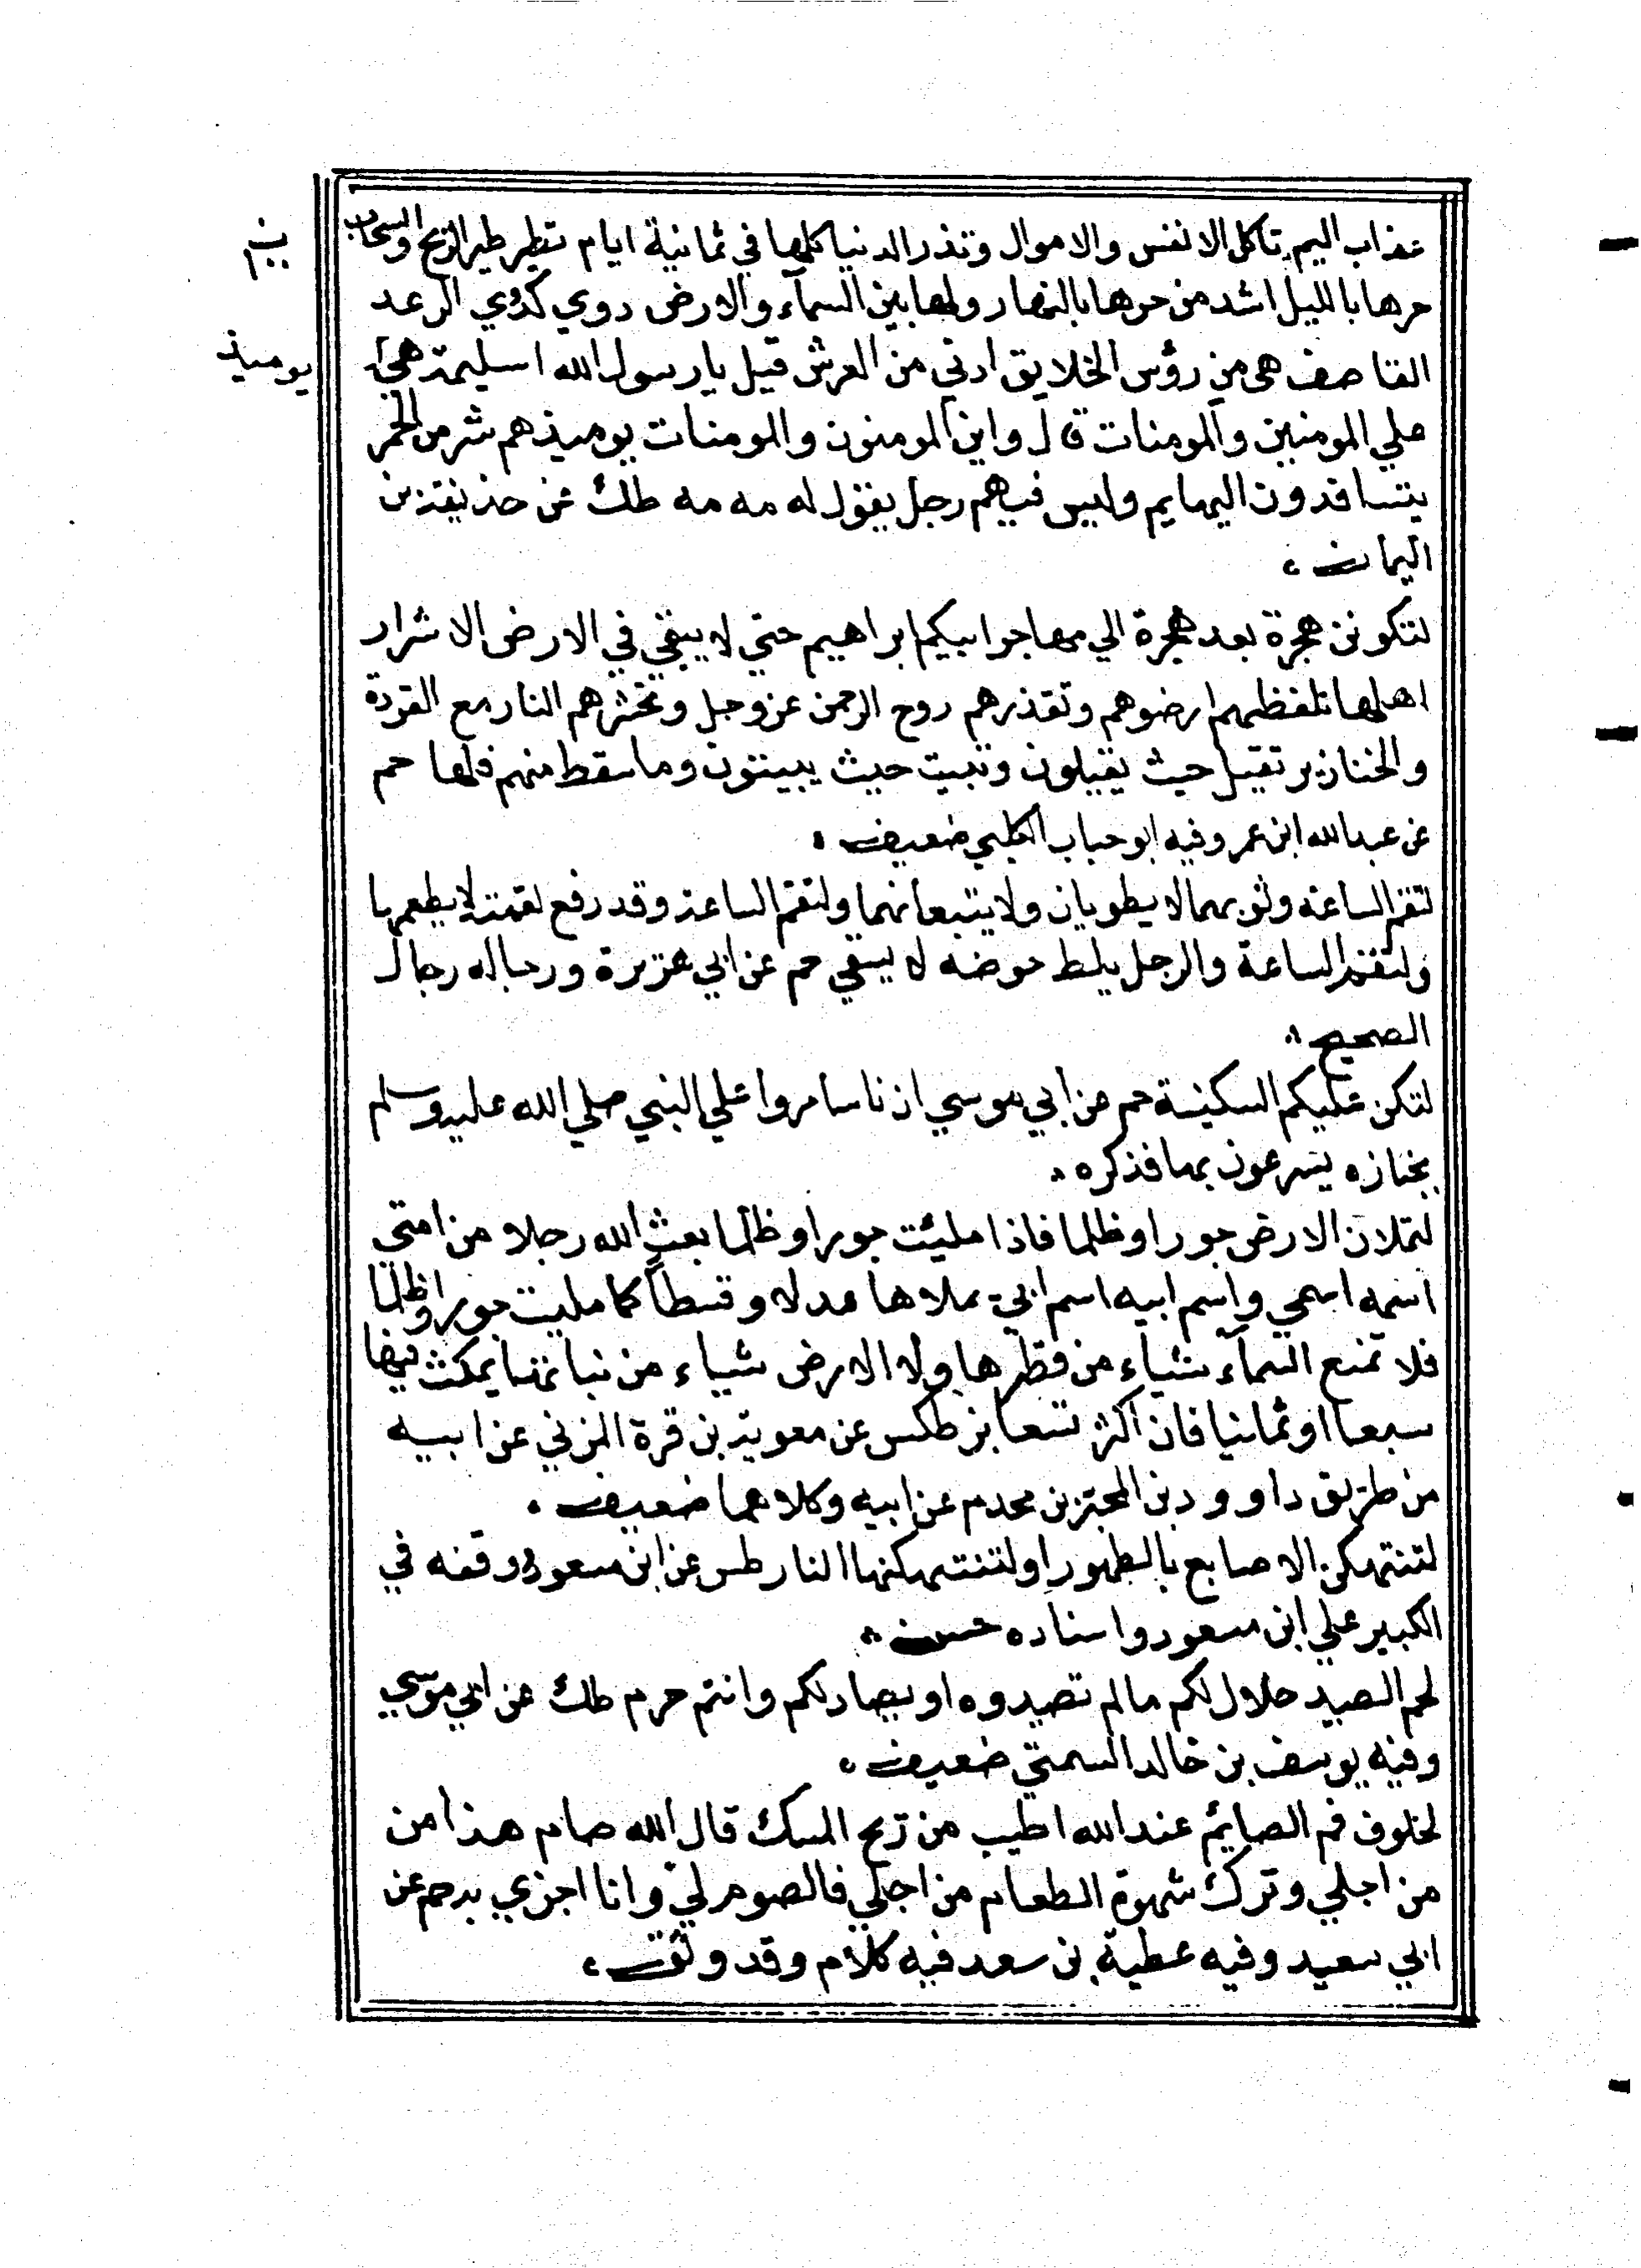 عذاب اليم تاكل الانفس والاموال وتذر الدنيا كلها في ثمانية ايام تطير طير الريح والسحاب
حرها بالليل اشد من حرها بالنهار ولها بين السماء والارض دوي كدوي الرعد
القاصف هي من رؤس الخلايق ادني من العرش قيل يا رسول الله اسليمة هي
يوميذ
علي المومنين والمومنات قال واين المومنون والمومنات يوميذ هم شر من الحمر
يتسافدون البهايم وليس فيهم رجل يقول له مه مه طك عن حذيفة بن
اليمان
لتكونن هجرة بعد هجرة الي مهاجر ابيكم ابراهيم حتي لا يبقي في الارض الا شرار
اهلها تلفظهم ارضوهم وتقذرهم روح الرحمن عز وجل وتحشرهم النار مع القردة
والخنازير تقيل حيث يقيلون وتبيت حيث يبيتون وما سقط منهم فلها حم
عن عبد الله ابن عمر وفيه ابو حباب الكلبي ضعيف
لتقم الساعة وثوبهما لا يطويان ولا يتبعانهما ولتقم الساعة وقد رفع لقمته لا يطعمها
ولتقم الساعة والرجل يلط حوضه لا يسقي حم عن ابي هريرة ورجاله رجال
الصحيح
لتكن عليكم السكينة حم عن ابي موسي ان ناسا مروا علي النبي صلي الله عليه وسلم
بجنازه يسرعون بها فذكره
لتملان الارض جورا وظلما فاذا مليئت جورا وظلما بعث الله رجلا من امتي
اسمه اسمي واسم ابيه اسم ابي يملاها عدلا وقسطا كما مليت جورا وظلما
فلا تمنع السماء شياء من قطرها ولا الارض شياء من نباتها يمكث فيها
سبعا او ثمانيا فان اكثر تسعا بز طكس عن معوية بن قرة المزني عن ابيه
من طريق داوود بن المحبر بن محدم عن ابيه وكلاهما ضعيف
لتنتهكن الاصابع بالطهور او لتنتهكنها النار طس عن ابن مسعود ووقفه في
الكبير علي ابن مسعود واسناده حسن
لحم الصيد حلال لكم ما لم تصيدوه او يصاد لكم وانتم حرم طك عن ابي موسي
وفيه يوسف بن خالد السمتي ضعيف
لخلوف فم الصايم عند الله اطيب من ريح المسك قال الله صام هذا من
من اجلي وترك شهوة الطعام من اجلي فالصوم لي وانا اجزي به حم عن
ابي سعيد وفيه عطية بن سعد فيه كلام وقد وثق